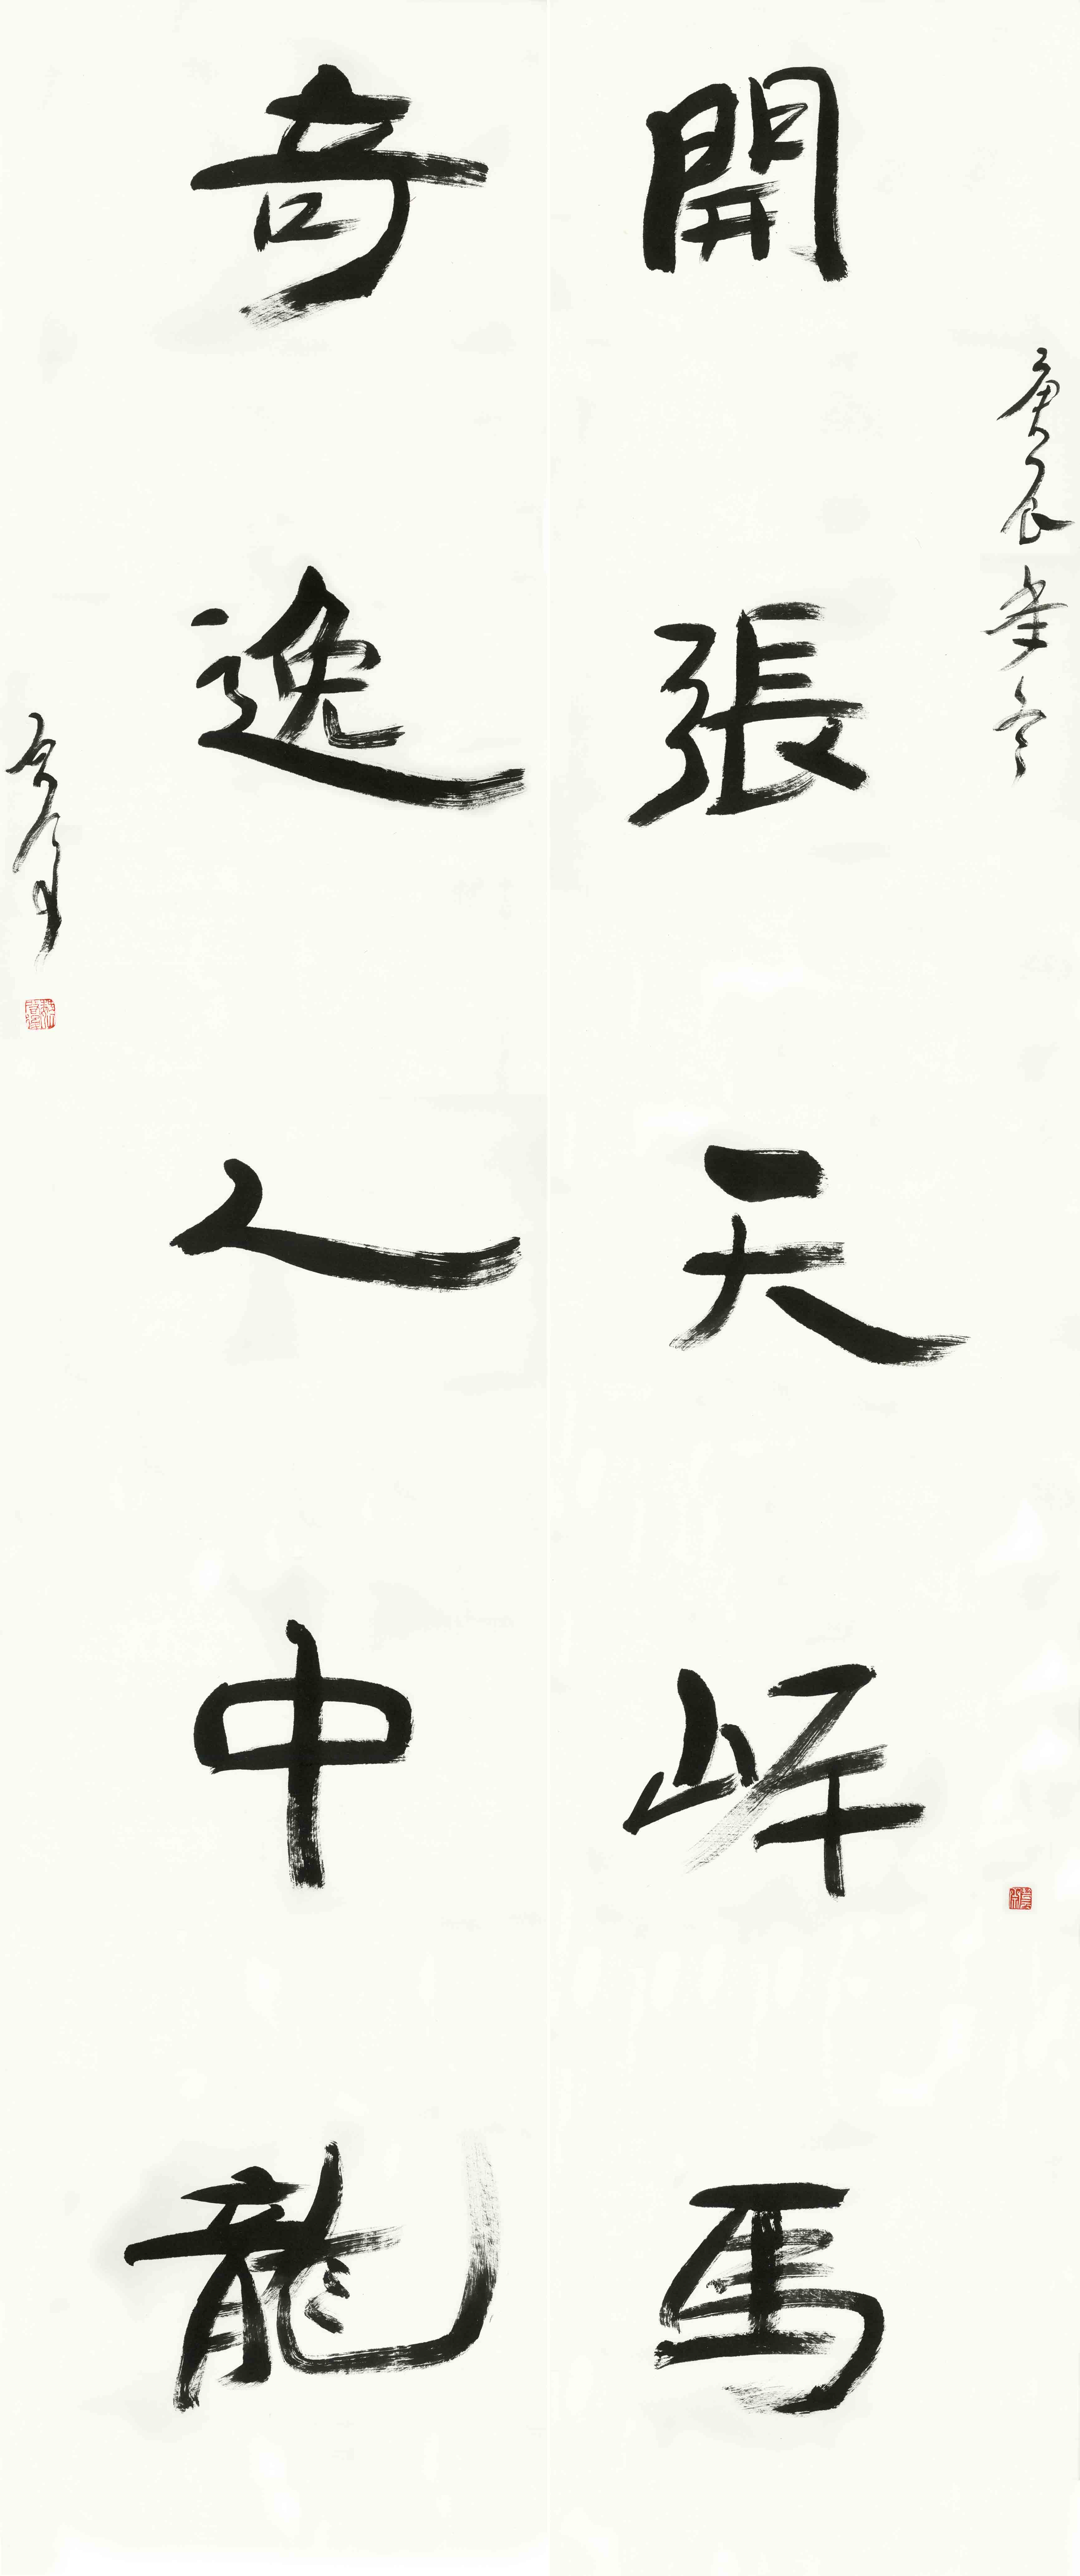 開張天岸馬
庚辰年冬
奇逸人中龍